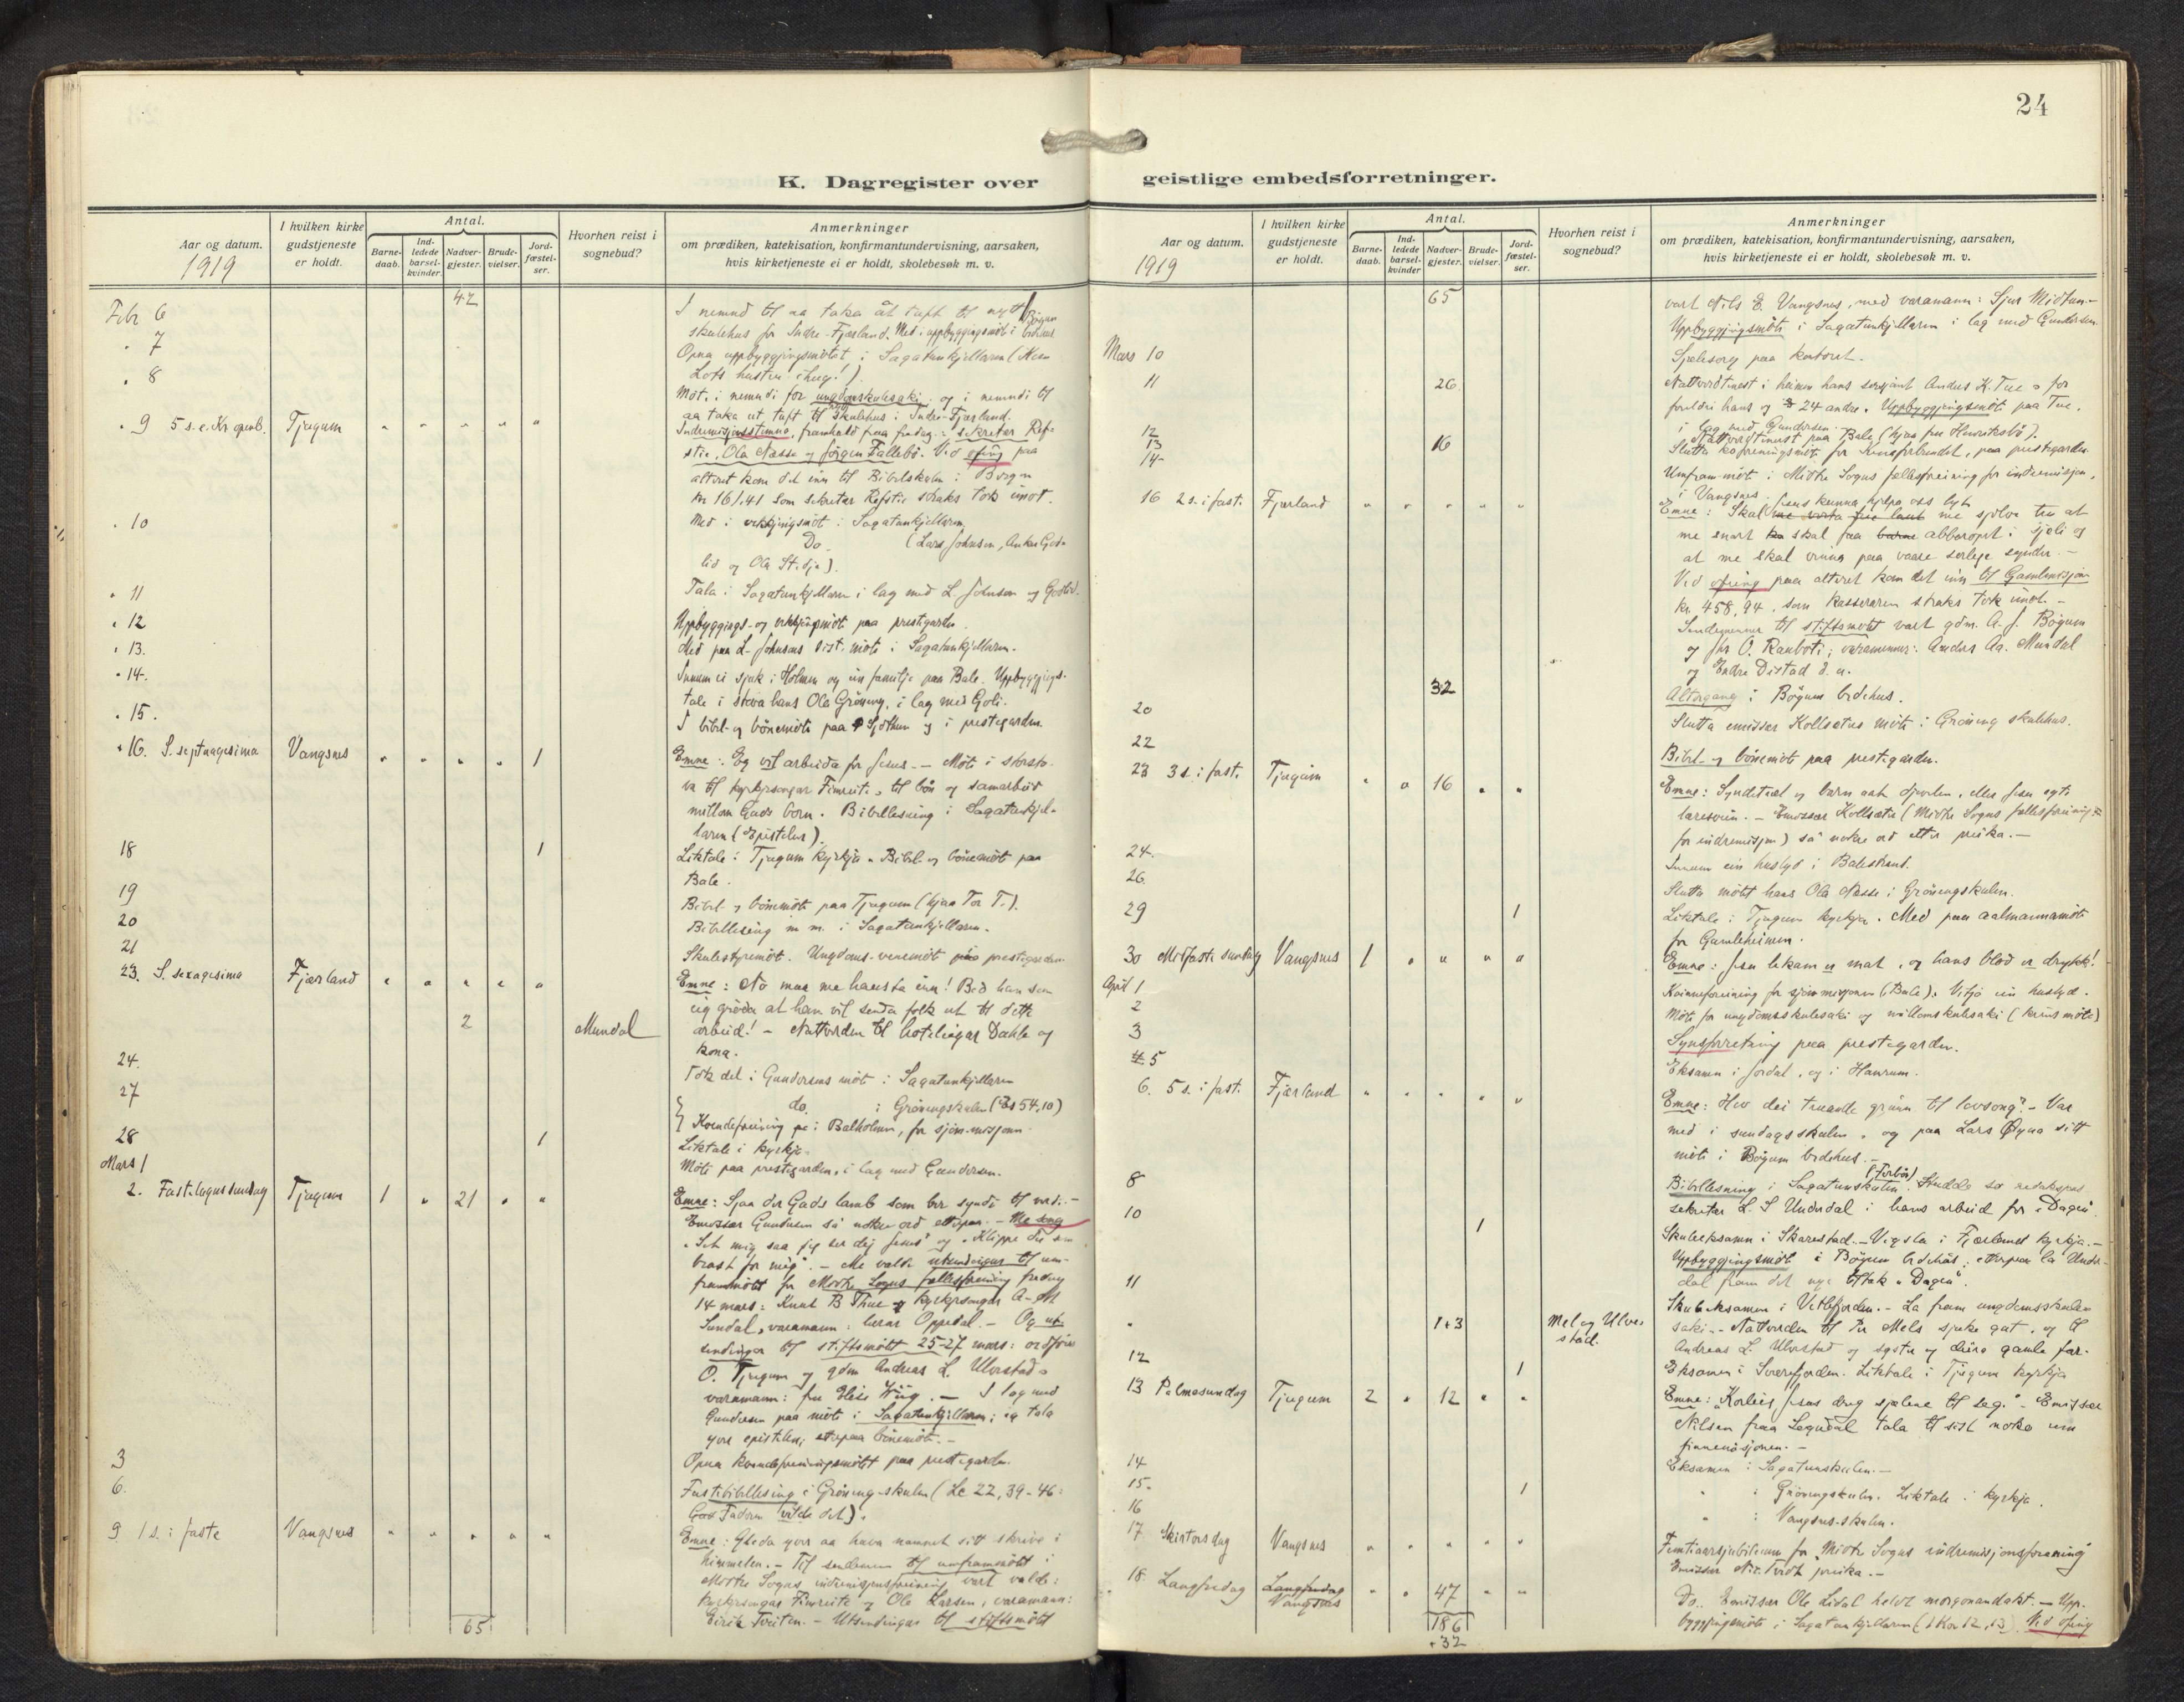 24
K. Dagregister over
geistlige embedsforretninger.
Aar og datum.
1919
I hvilken kirke
gudstjeneste
er holdt.
Antal.
Barne-
daab.
Ind-
ledede
barsel-
kvinder.
Nadver-
gjester.
Brude-
vielser.
Jord-
fæstel-
ser.
Hvorhen reist i
sognebud?
Anmerkninger
om prædiken, katekisation, konfirmantundervisning, aarsaken,
hvis kirketjeneste ei er holdt, skolebesøk m. v.
42
Febr 6 I nemnd til aa taka ût tuft til nytt
skulehus for Indre-Fjærland. Med i uppbyggingsmöt i
" 7 Opna uppbyggjingsmötet i Sagatunkjellaren
" 8
Möt. i nemndi for ungdomskulesaki, og i nemndi til
aa taka ut tuft til skulehus i Indre-Fjærland.
" 9 5 s. e. Kr. openb. Tjugum " " " " "
Indremisjonsstemna, framhald fraa fredag: sekretær Ref-
stie, Ola Næsse og Jörgen Fallebö. Ved ofring paa
alteret kom det inn til Bibelskulen i Bergen
kr 161.41 som sekretær Refstie straks tok imot.
" 10 Med i vekkjingsmöt i Sagatunkjellaren
Do. (Lars Johnsen, Anker God-
lid og Ola Stedje).
" 11 Tala i Sagatunkjellaren i lag med L. Johnsen og Godlid.
" 12 Uppbyggings- og vekkjingsmöt paa prestegarden.
" 13. Med paa L. Johnsens sist. möte i Sagatunkjellaren.
" 14. Innum ei sjuk i Holmen og ein familje paa Bale. Uppbyggings-
tale i stova hans Ola Gröneng, i lag med Godl.
" 15. I bibel- og bönemöte paa Sjöthun og i prestegarden.
" 16. S. septuagesima Vangsnes " " " " 1
Emne: Eg vil arbeida for Jesus. — Möte i
til kyrkjesongar Fimreite, til bön og samarbeid
millom Guds born. Bibellesning i Sagatunkjel-
laren (Epistelen).
18 1 Liktale i Tjugum kyrkja. Bibel- og bönemöt paa
Bale.
19 Bibel- og bönemöte paa Tjugum (hjaa Tor T.).
20 Bibellesing m. m. i Sagatunkjellaren.
21 Skulestyremöt. Ungdoms-venemöt paa prestegarden
23. S. sexagesima Fjærland " " " " "
Emne: No maa me hausta inn! Bed han som
eig gröda at han vil senda folk ut til dette
2 Mundal arbeid! - Nattverden til hoteleigar Dahle og
kona.
24. Tok del i Gundersens möt i Sagatunkjellaren
27 do. i Gröningskulen (Es 54,10)
Kvendeforeining i Balholmen, for sjöm.misjonen.
28 1 Liktale i kyrkja.
Mars 1 Möte paa prestegarden, i lag med Gundersen.
2. Fastelagnssundag Tjugum 1 " 21 " "
Emne: Sjaa der Guds lamb som ber syndi til verdi. -
Emissær Gundersen sa nokre ord etterpaa. - Me song
"Lat mig saa jeg ser dig Jesus" og "Klippe du som
brast for mig". - Me valde utsendingar til um-
frammötet for Midtre Sogns fellesforeining fredag
14 mars: Knut B Thue og kyrkjesongar A. M
Sundal, varamann: lærar Oppedal. - Og ut-
sendingar til stiftsmötet 25-27 mars: ordförar
O. Tjugum og gdm Andreas L. Ulvestad,
varamann: fru Elise Wiig. - I lag med
Gundersen paa möte i Sagatunkjellaren; eg tala
yver epistelen; etterpaa bönemöte. -
3 Opna kvendeforeiningsmötet paa prestegarden.
6. Fastebibellesing i Gröningskulen (Lc 22, 39-46:
Faderen vilde det).
9 1 s. i faste Vangsnes " " " " "
Emne: Gleda yver aa hava namnet sitt skrive i
himmelen. - Til sendemenn til umframmötet i
Midtre Sogns indremisjonsforeining vart valde:
kyrkjesongar Fimreite og Ole Larsen, varamann:
Eirik Tveiten. - Utsendingar til stiftsmötet
65
Aar og datum.
1919
I hvilken kirke
gudstjeneste
er holdt.
Antal.
Barne-
daab.
Ind-
ledede
barsel-
kvinder
Nadver-
gjester.
Brude-
vielser.
Jord-
fæstel-
ser.
Hvorhen reist i
sognebud?
Anmerkninger
om prædiken, katekisation, konfirmantundervisning, aarsaken,
hvis kirketjeneste ei er holdt, skolebesøk m. v.
65 vart Nils E. Vangsnes, med varamann: Sjur Midtun.-
Uppbyggjingsmöte i Sagatunkjellaren i lag med Gundersen.
Mars 10 Sjelesorg paa kontoret.
11 26 Nattverdtenest i heimen hans sersjant Anders K. Tue, for
foreldri hans og 24 andre. Uppbyggjingsmöte paa Tue,
i lag med Gundersen.
12 16 Nattverdtenest paa Bale (hjaa fru Henriksbö).
13 Slutta foreningsmöte for Kinaforbundet, paa prestegarden.
14 Umframmöt i Midtre Sogns fellesforeining for indremisjon,
i Vangsnes.
16 2 s. i fast. Fjærland " " " " "
Emne: Skal Jesus kunna hjelpa oss lyt me sjölve tru at
me snart skal faa abboropt i sjeli og
at me skal vinna paa vaare serlege synder. -
Ved ofring paa alteret kom det inn til Gamlemisjonen
kr. 458,94, som kasseraren straks tok imot. -
Sendemenner til stiftsmötet vart gdm. A. J. Böyum
og O. Ranboti; varamenner: Anders Aa. Mundal
og Endre Distad d. u.
32 Altergang i Böyum bedehus.
20 Slutta emissær Kollsetes möte i Gröning skulehus.
22 Bibel- og bönemöt paa prestegarden.
23 3 s. i fast. Tjugum " " 16 " "
Emne: Syndetræl og barn aat djevelen, eller Jesu egte
læresvein. - Emissær Kollsete (Midtre Sogns fellesforeining
for indremisjon) sa nokre ord etter preika. -
24. Innum ein huslyd i Balestrand.
26. Slutta mötet hans Ola Næsse i Gröningskulen.
29 1 Liktale i Tjugum kyrkja. Med paa aalmannamöte
for Gamleheimen.
30 Midfaste sundag Vangsnes 1 " " " "
Emne: Jesu lekam er mat, og hans blod er drykk!
April 1 Kvinneforeining for sjömmisjonen (i Bale). Vitja ein huslyd.
2 Möte for ungdomsskulesaki og millomskulesaki (krinsmöte)
3 Synsforretning paa prestegarden.
5 Eksamen i Jordal, og i Hamrum.
6. 5 s. i fast. Fjærland " " " " "
Emne: Hev dei truande grunn til lovsong? - Var
med i sundagsskulen, og paa Lars Öygna sitt
möte i Böyum bedehus. -
8 Bibellesning i Sagatunskulen (Forbön). Studde so redaksjons-
sekretær L. S Underdal i hans arbeid for "Dagen".
10 1 Skuleeksamen i Skarestad. - Vigsla i Fjærland kyrkja. -
Uppbyggjingsmöt i Böyum bedehus; etterpaa la Under-
dal fram det nye tiltak "Dagen".
11 Skuleeksamen i Vetlefjorden. - La fram ungdomsskulen
" 1+3 Mel og Ulve-
stad.
saki. - Nattverden til Per Mels sjuke gut, og til
Andreas L. Ulvestad og syster og deira gamle far.
12 1 Eksamen i Sværefjorden. Liktale i Tjugum kyrkja
13 Palmesundag Tjugum 2 " 12 " "
Emne: "Korleis Jesus dreg sjelene til seg." - Emissær
Nilsen fraa Sogndal tala til sist noko um
finnemisjonen. -
14 Eksamen i Sagatunskulen. -
15. 1 " i Gröningskulen. Liktale i kyrkja.
16 " i Vangsnes-skulen.
17 Skirtorsdag Vangsnes " " " " "
Femtiaarsjubileum for "Midtre Sogns indremisjonsforeining"
Emissær Nic. Tvedt preika. -
18. Langfredag Langfredag Vangsnes " " 47 " "
Do. Emissær Ole Lidal heldt morgonandakt. - Upp-
byggjingsmöte i Sagatunkjellaren (1 Kor 12, 13). Ved ofring
186
+32